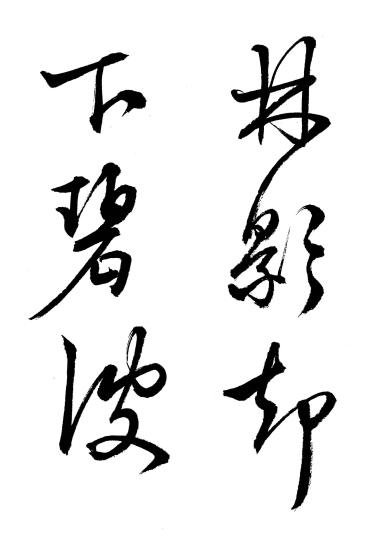 林影却
下碧波